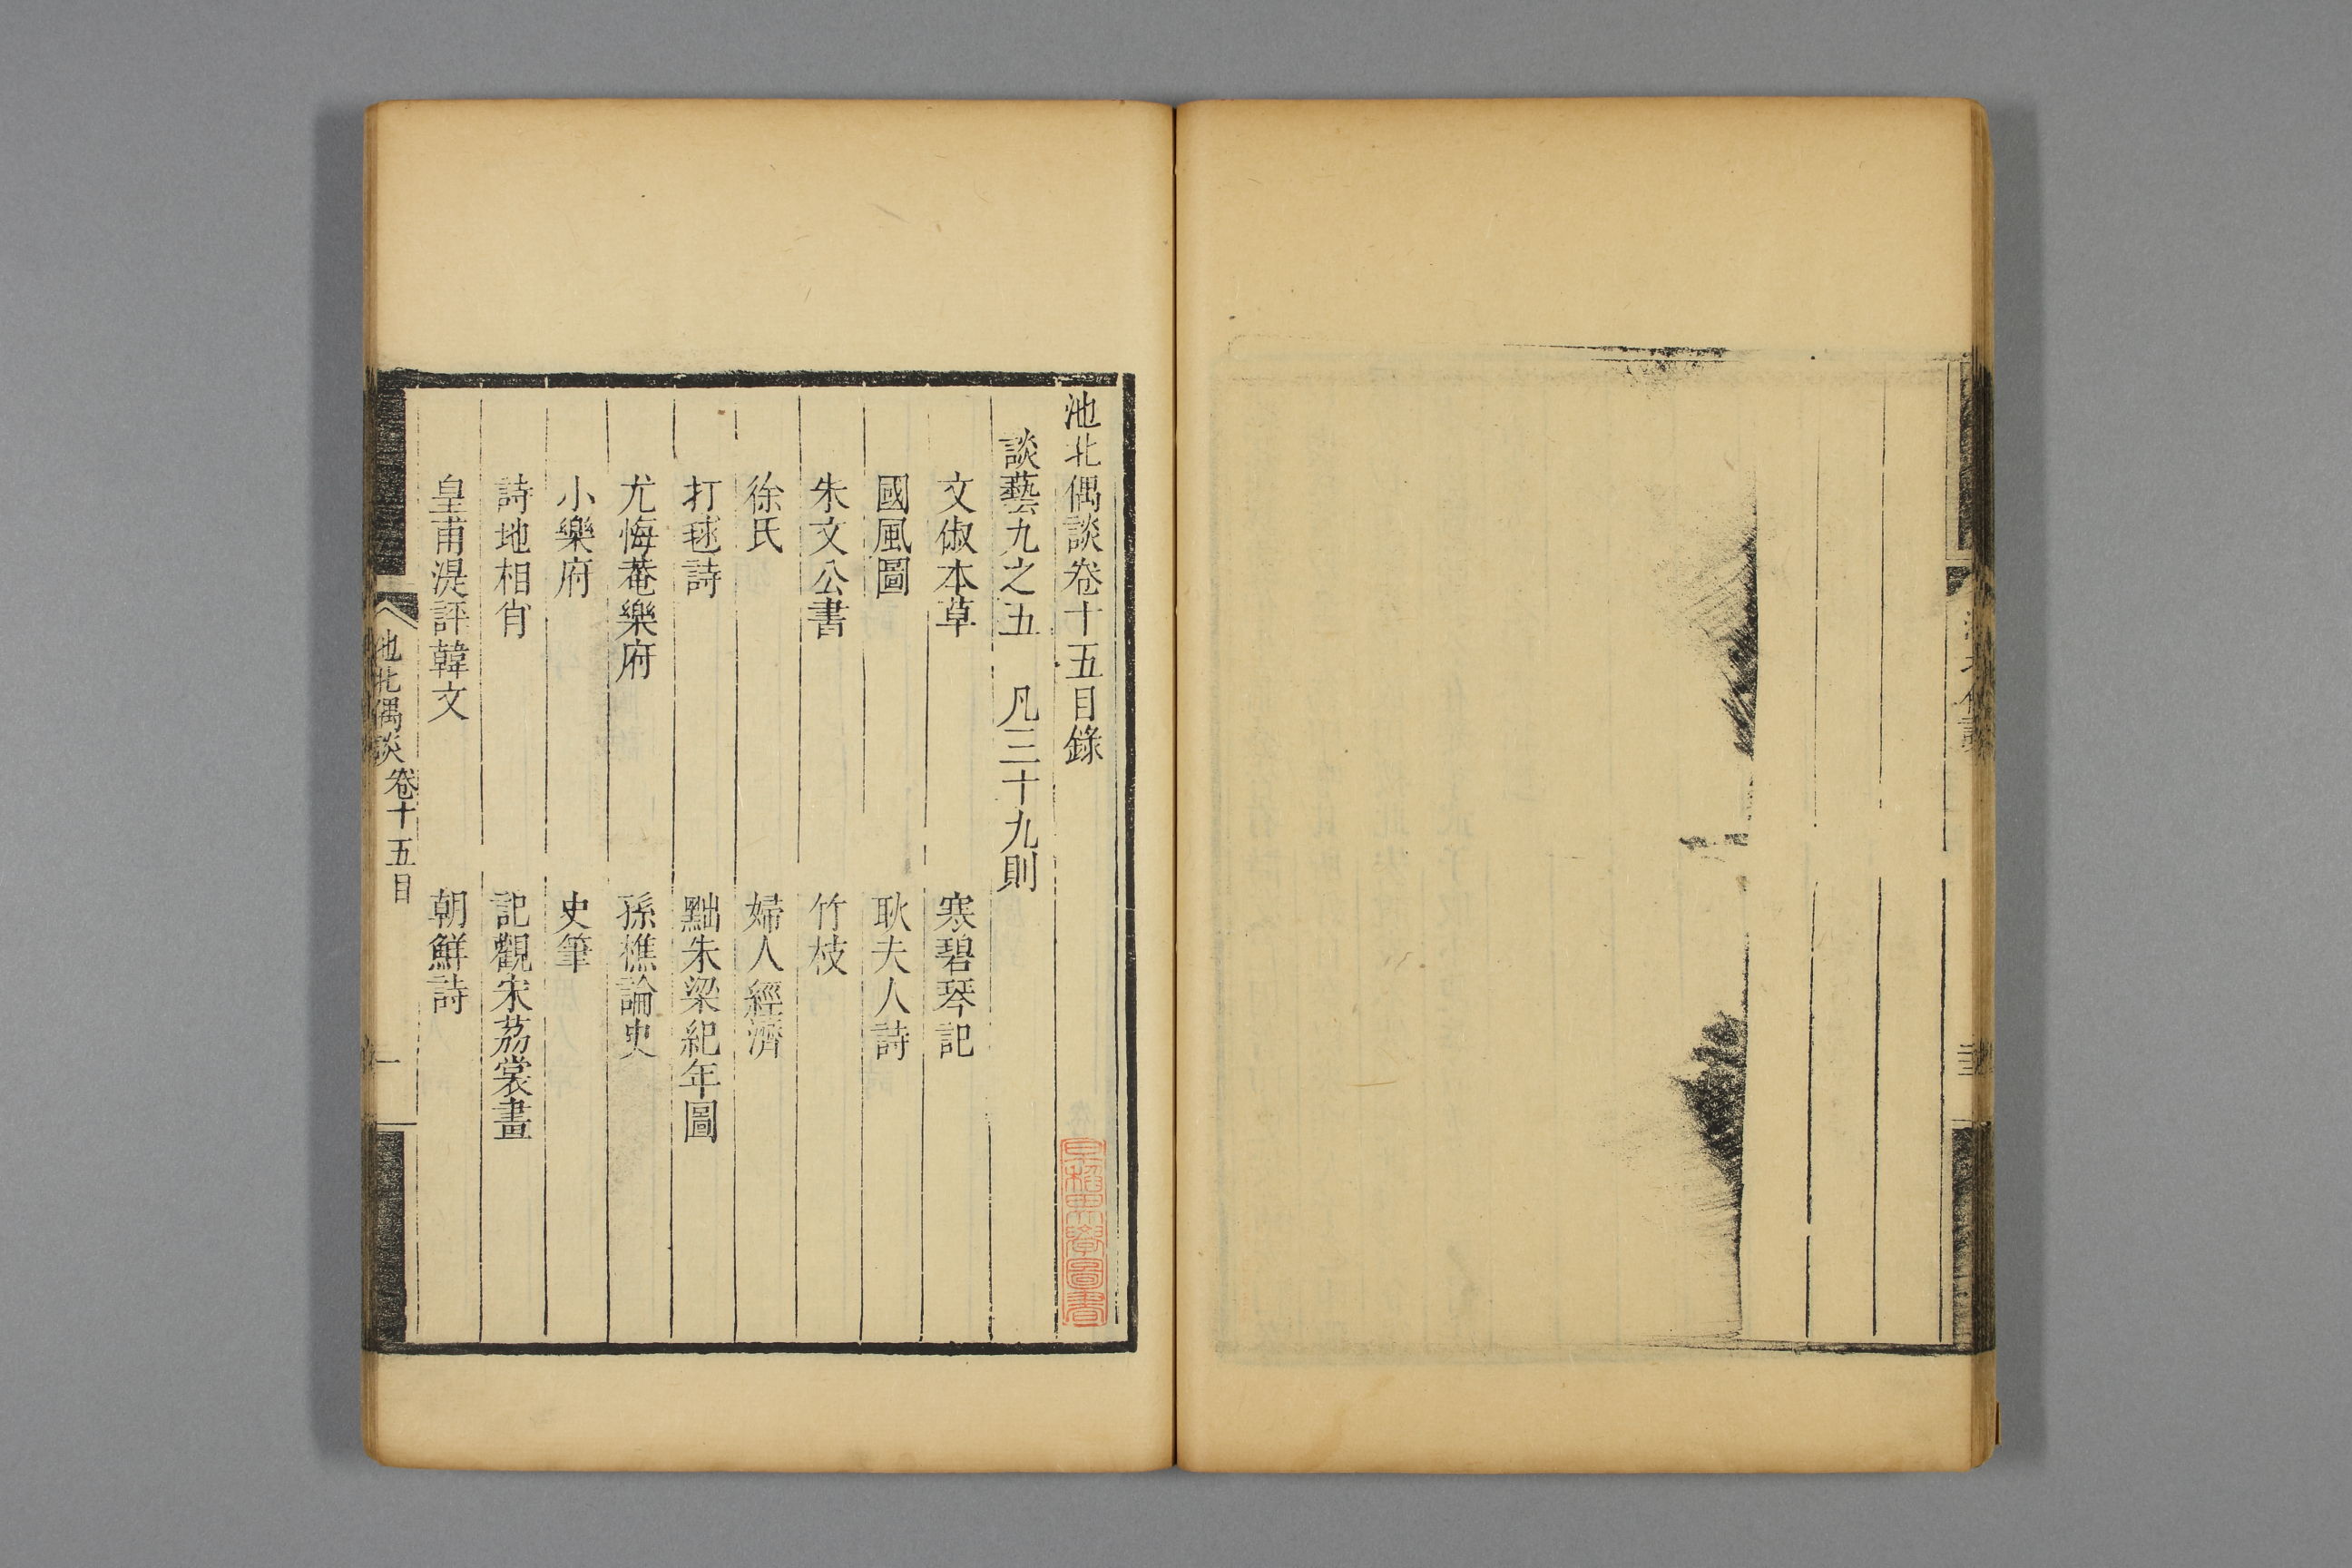 池北偶談卷十五目錄
談藝九之五　凡三十九則
文俶本草　寒碧琴記
國風圖　耿夫人詩
朱文公書　竹枝
徐氏　婦人經濟
打毬詩　黜朱梁紀年圖
尤悔菴樂府　孫樵論史
小樂府　史筆
詩地相肖　記觀宋荔裳畫
皇甫湜評韓文　朝鮮詩
池北偶談　卷十五目　一
早稻田大學圖書